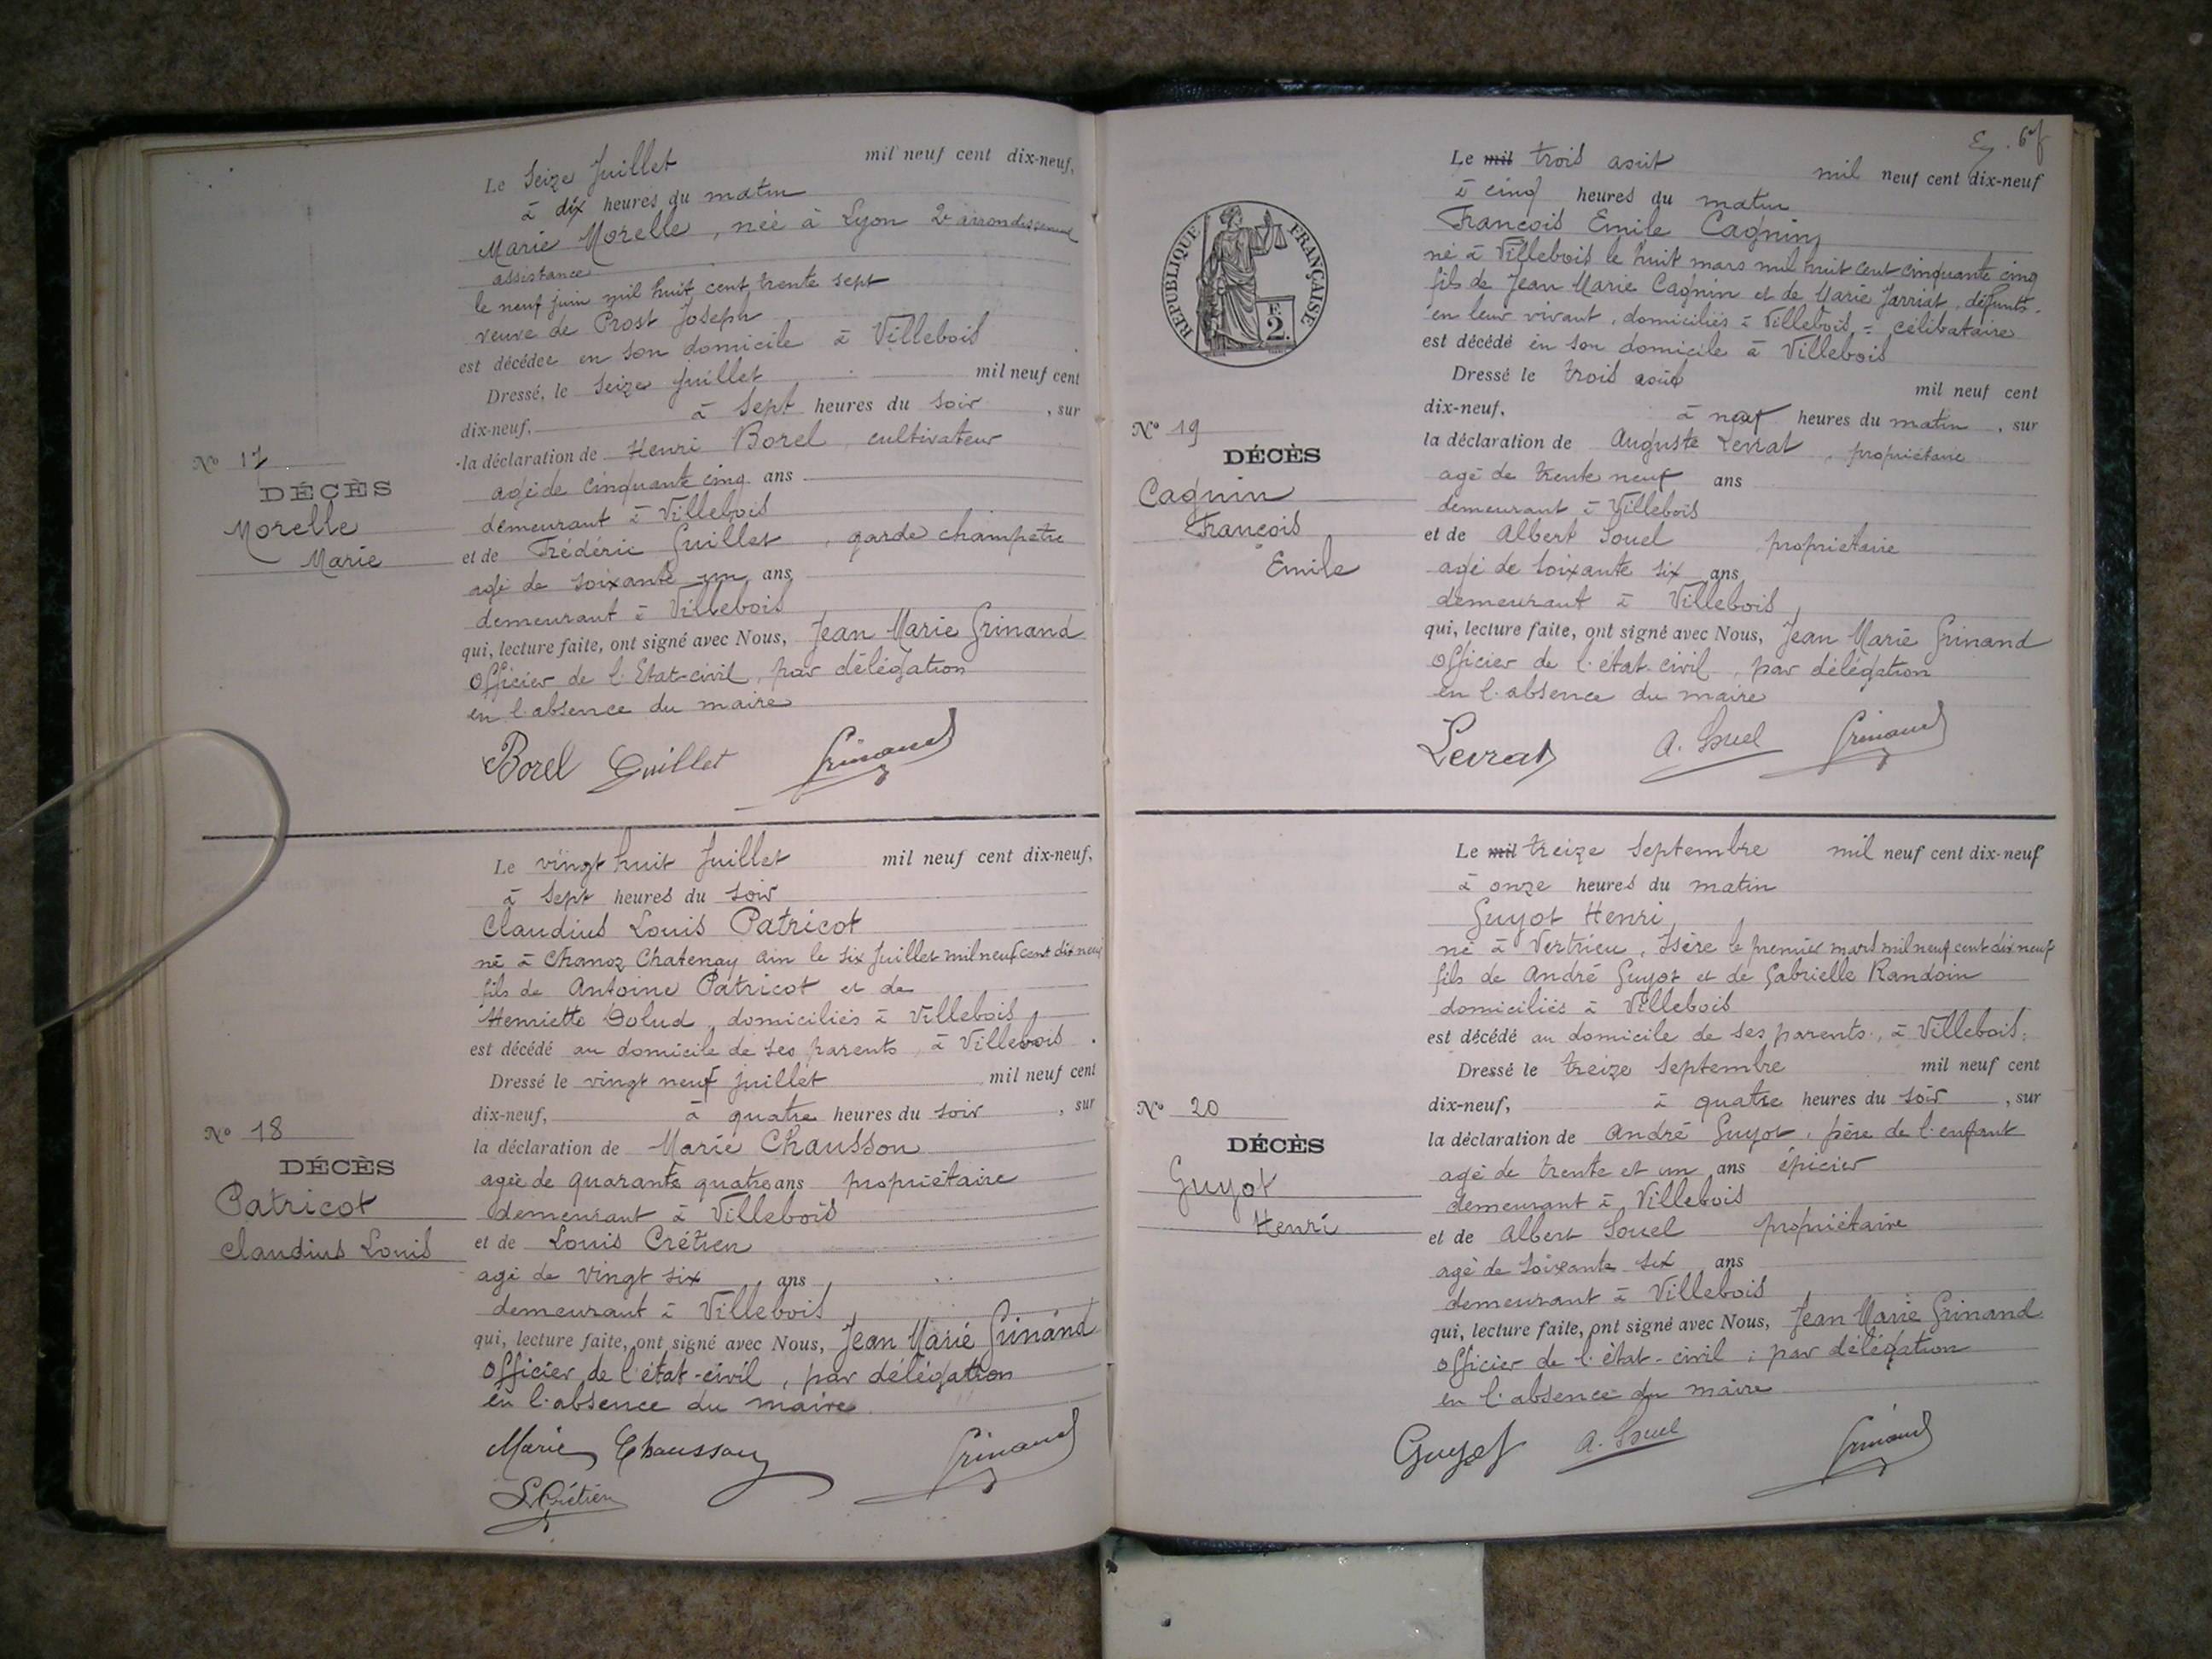 Le Seize Juillet mil neuf cent dix-neuf,
à dix heures du matin
Marie Morelle, née à Lyon 2e arrondissement
assistance
le neuf juin mil huit cent trente sept
veuve de Prost Joseph
est décédée en son domicile à Villebois
Dressé, le seize juillet mil neuf cent
dix-neuf, à sept heures du soir, sur
la déclaration de Henri Borel, cultivateur
agé de cinquante cinq ans
demeurant à Villebois
et de Frédéric Guillet, garde champêtre
agé de soixante un ans
demeurant à Villebois
qui, lecture faite, ont signé avec Nous, Jean Marie Grinand
Officier de l'Etat-civil, par délégation
en l'absence du maire
Borel Guillet Grinand
No 17
DÉCÈS
Morelle
Marie
Le vingt huit Juillet mil neuf cent dix-neuf,
à sept heures du soir
Claudius Louis Patricot
né à Chanoz Chatenay ain le six juillet mil neuf cent dix neuf
fils de Antoine Patricot et de
Henriette Dolud, domiciliés à Villebois
est décédé au domicile de ses parents, à Villebois.
Dressé le vingt neuf juillet mil neuf cent
dix-neuf, à quatre heures du soir, sur
la déclaration de Marie Chausson
agée de quarante quatre ans propriétaire
demeurant à Villebois
et de Louis Crétien
agé de vingt six ans
demeurant à Villebois
qui, lecture faite, ont signé avec Nous, Jean Marie Grinand
Officier de l'état-civil, par délégation
en l'absence du maire
Marie Chausson Grinand
L. Crétien
No 18
DÉCÈS
Patricot
Claudius Louis
RÉPUBLIQUE FRANÇAISE
F.
2.
Le mil trois août mil neuf cent dix-neuf
à cinq heures du matin
François Emile Cagnin
né à Villebois le huit mars mil huit cent cinquante cinq
fils de Jean Marie Cagnin et de Marie Jarriat, défunts
en leur vivant, domiciliés à Villebois = célibataire
est décédé en son domicile à Villebois
Dressé le trois août mil neuf cent
dix-neuf, à neuf heures du matin, sur
la déclaration de Auguste Levrat, propriétaire
agé de trente neuf ans
demeurant à Villebois
et de Albert Souel propriétaire
agé de soixante six ans
demeurant à Villebois
qui, lecture faite, ont signé avec Nous, Jean Marie Grinand
Officier de l'état-civil, par délégation
en l'absence du maire
Levrat A. Souel Grinand
No 19
DÉCÈS
Cagnin
François
Emile
Le mil treize septembre mil neuf cent dix-neuf
à onze heures du matin
Guyot Henri
né à Vertrieu, Isère le premier mars mil neuf cent dix neuf
fils de André Guyot et de Gabrielle Randoin
domiciliés à Villebois
est décédé au domicile de ses parents, à Villebois.
Dressé le treize septembre mil neuf cent
dix-neuf, à quatre heures du soir, sur
la déclaration de André Guyot, père de l'enfant
agé de trente et un ans épicier
demeurant à Villebois
et de Albert Souel propriétaire
agé de soixante six ans
demeurant à Villebois
qui, lecture faite, ont signé avec Nous, Jean Marie Grinand
officier de l'état-civil; par délégation
en l'absence du maire
Guyot A. Souel Grinand
No 20
DÉCÈS
Guyot
Henri